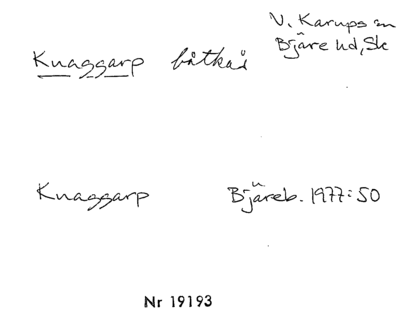 V. Karups sn
Knaggarp båtkås Bjäre hd, Sk
Knaggarp Bjäreb. 1977:50
Nr 19193